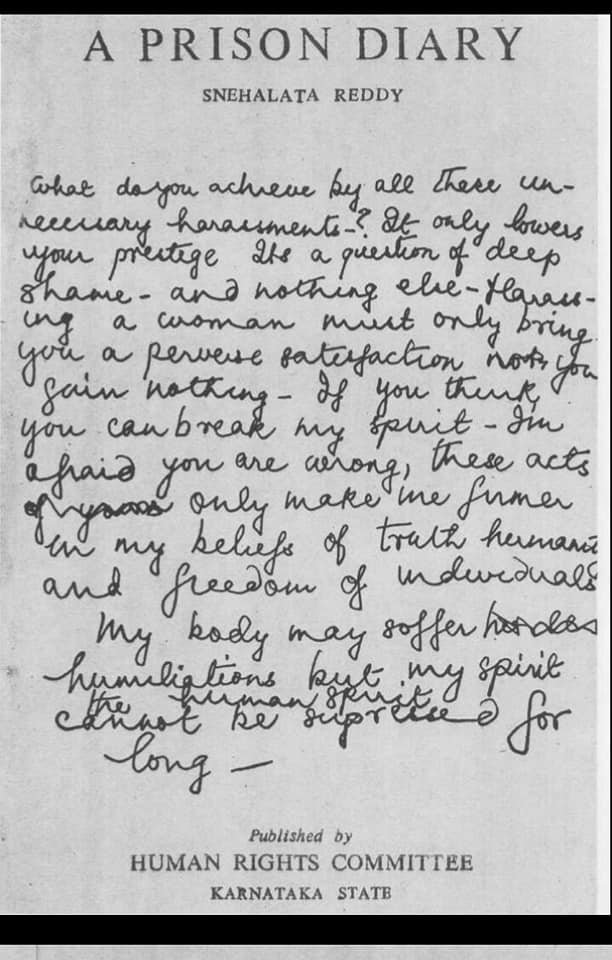 A PRISON DIARY
SNEHALATA REDDY
What do you achieve by all these un-
necessary harassments-? It only lowers
your prestige Its a question of deep
shame - and nothing else - Harass-
ing a woman must only bring
you a perverse satisfaction you
gain nothing - If you think
you can break my spirit - I'm
afraid you are wrong, these acts
of yours only make me firmer
in my beliefs of truth humanity
and freedom of individuals
My body may soffer
humiliations but my spirit
the human spirit
cannot be supressed for
long -
Published by
HUMAN RIGHTS COMMITTEE
KARNATAKA STATE